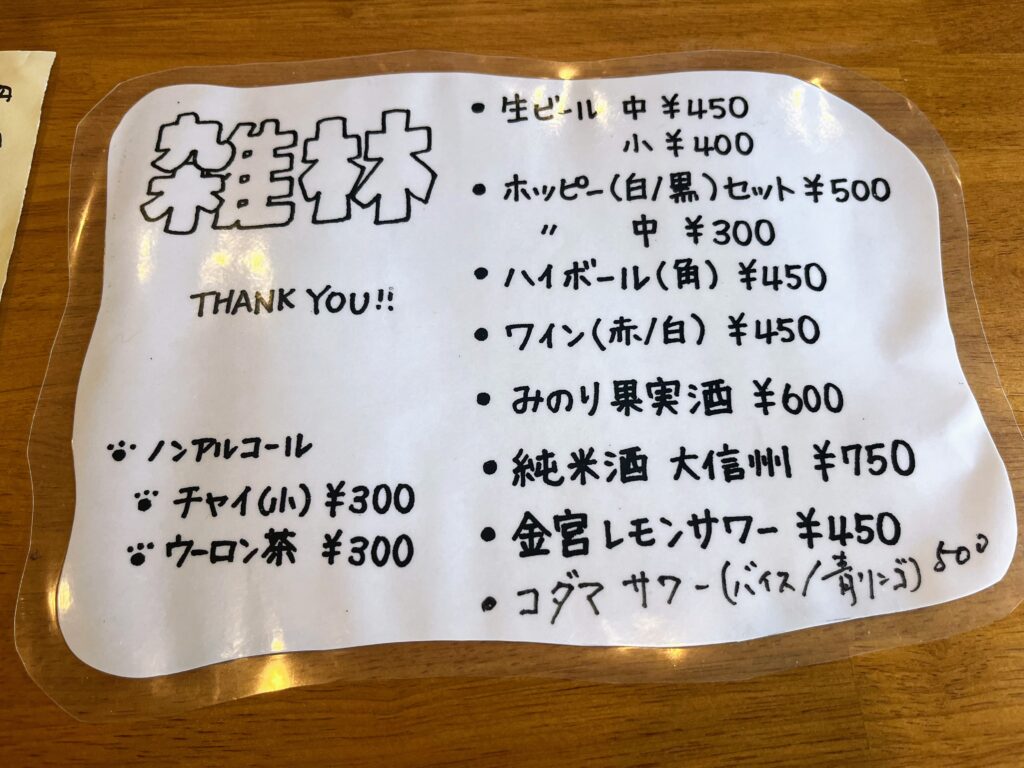 雑林
THANK YOU!!
・生ビール 中 ¥450
小 ¥400
・ホッピー(白/黒)セット ¥500
〃 中 ¥300
・ハイボール(角) ¥450
・ワイン(赤/白) ¥450
・みのり果実酒 ¥600
・純米酒 大信州 ¥750
・金宮レモンサワー ¥450
・コダマ サワー(バイス/青リンゴ) 500
ノンアルコール
チャイ(小) ¥300
ウーロン茶 ¥300
円